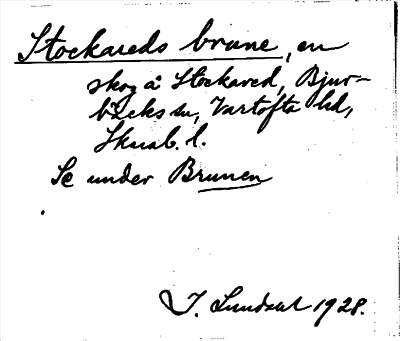 Stockareds brune, en
skog å Stockared, Bjur-
bäcks sn, Vartofta hd,
Skarab. l.
Se under Brunen
J. Lundahl 1928.